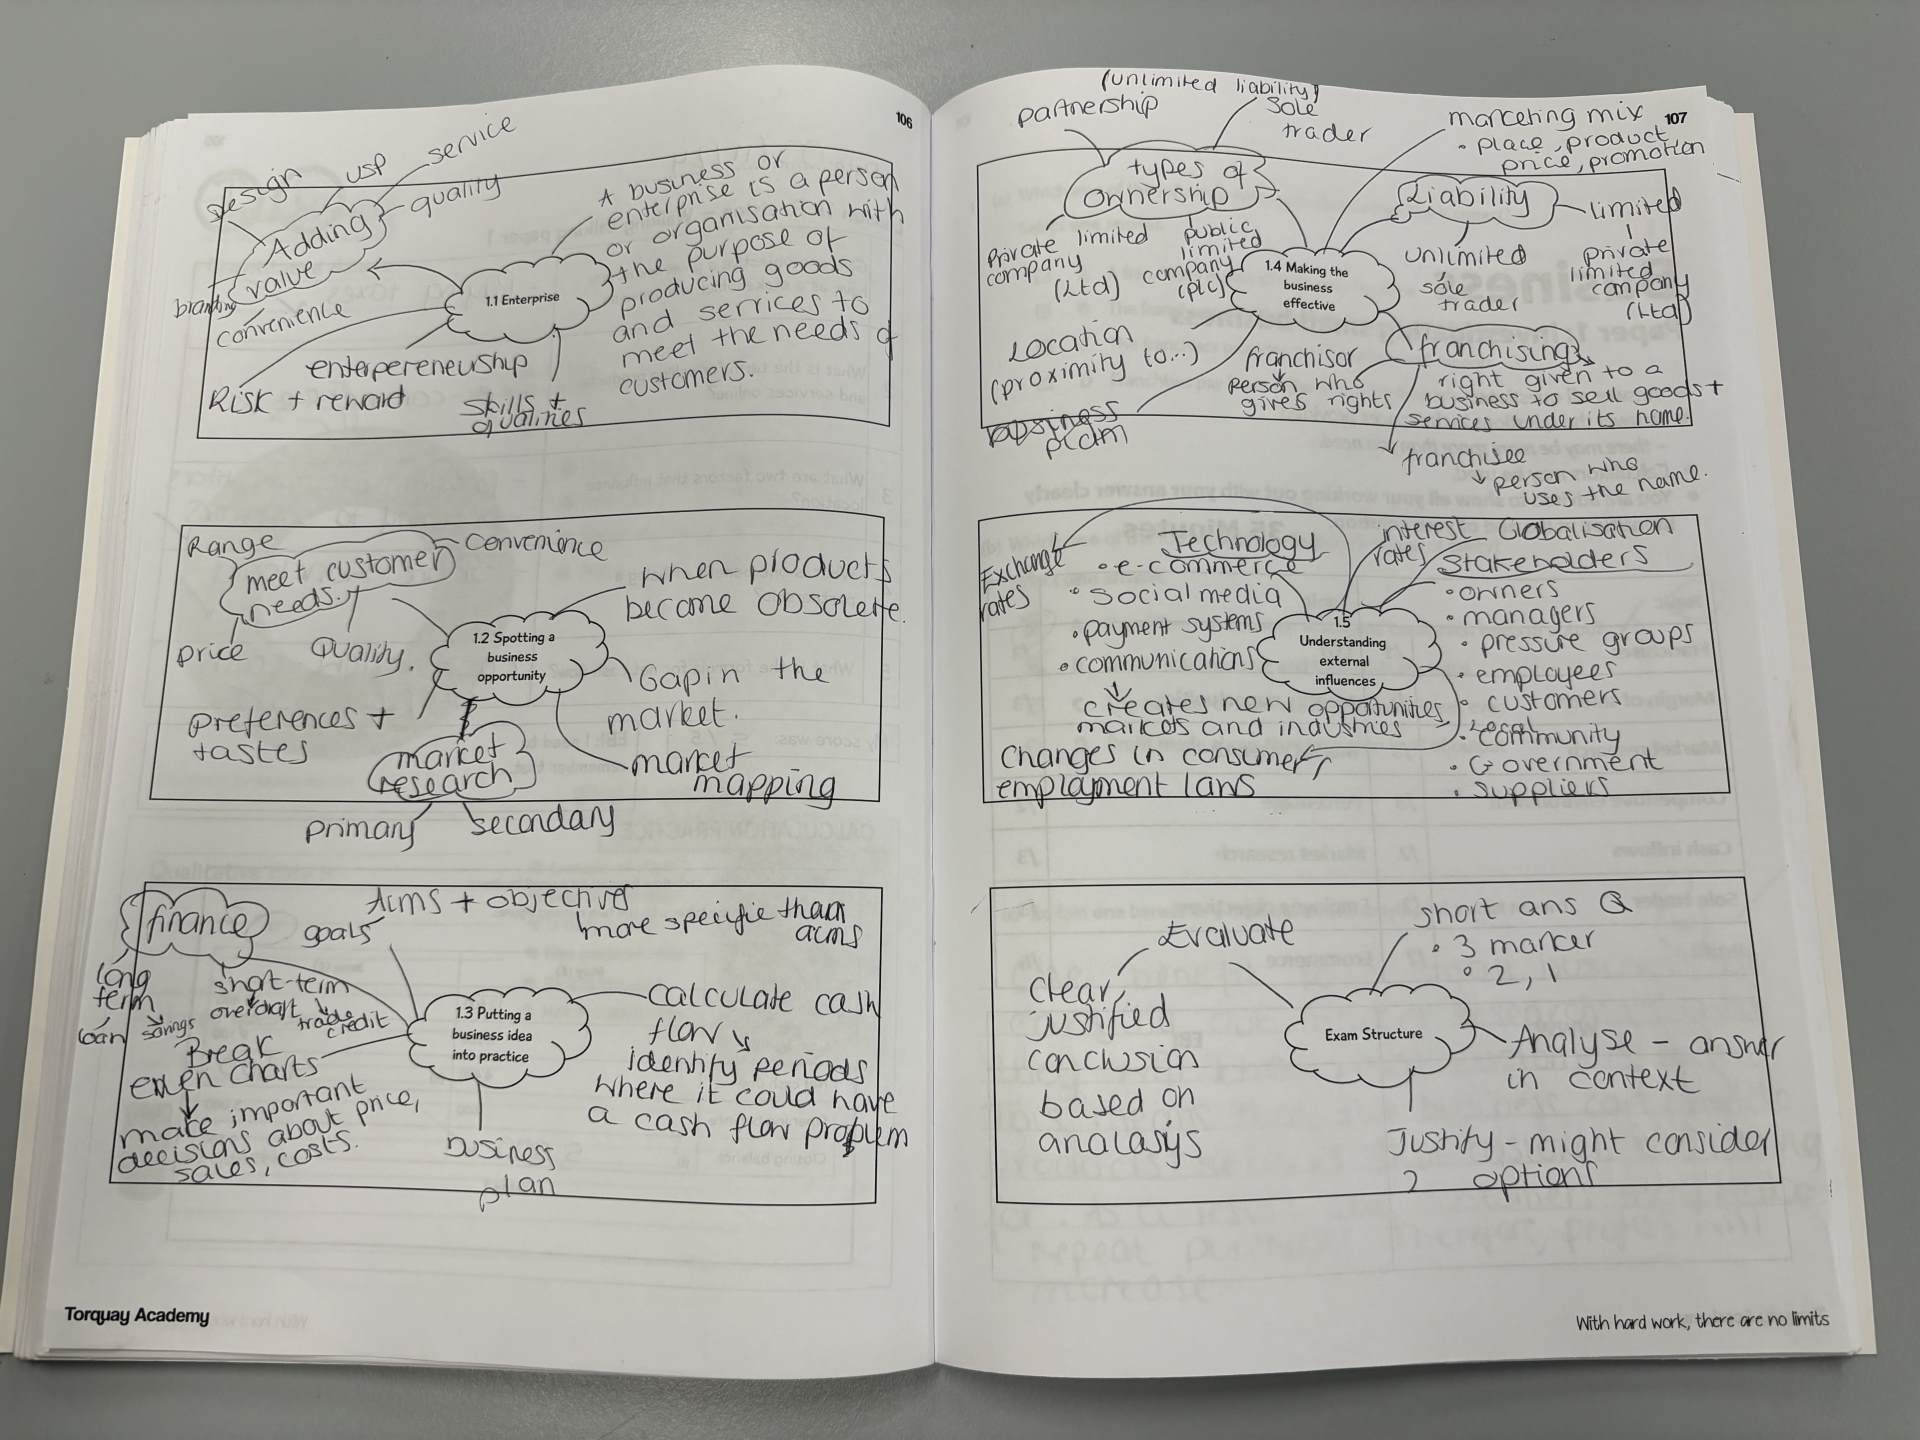 106
design
usp
service
quality
Adding
value
branding
convenience
1.1 Enterprise
A business or
enterprise is a person
or organisation with
the purpose of
producing goods
and services to
meet the needs of
customers.
enterpereneurship
Risk + reward
skills +
qualities
Range
convenience
meet customer
needs.
price
Quality.
1.2 Spotting a
business
opportunity
when products
become obsolete.
Gap in the
market.
market
mapping
preferences +
tastes
market
research
primary
secondary
finance
goals
Aims + objectives
more specific than
aims
long
term
loan
savings
short-term
overdraft
trade
credit
Break
even charts
make important
decisions about price,
sales, costs.
1.3 Putting a
business idea
into practice
calculate cash
flow
identify periods
where it could have
a cash flow problem
business
plan
Torquay Academy
107
(unlimited liability)
partnership
sole
trader
types of
ownership
private limited
company
(Ltd)
public
limited
company
(plc)
marketing mix
• place, product
price, promotion
Liability
limited
private
limited
company
(Ltd)
unlimited
sole
trader
1.4 Making the
business
effective
Location
(proximity to...)
business
plan
franchising
right given to a
business to sell goods +
services under its name.
franchisor
person who
gives rights
franchisee
person who
uses the name.
Exchange
rates
Technology
• e-commerce
• social media
• payment systems
• communications
creates new opportunities
markets and industries
interest
rates
Globalisation
Stakeholders
• owners
• managers
• pressure groups
• employees
• customers
• community
• Government
• suppliers
1.5
Understanding
external
influences
legal
changes in consumer,
employment laws
Evaluate
clear,
justified
conclusion
based on
analasys
short ans Q
• 3 marker
• 2, 1
Exam Structure
Analyse - answer
in context
Justify - might consider
2 options
With hard work, there are no limits